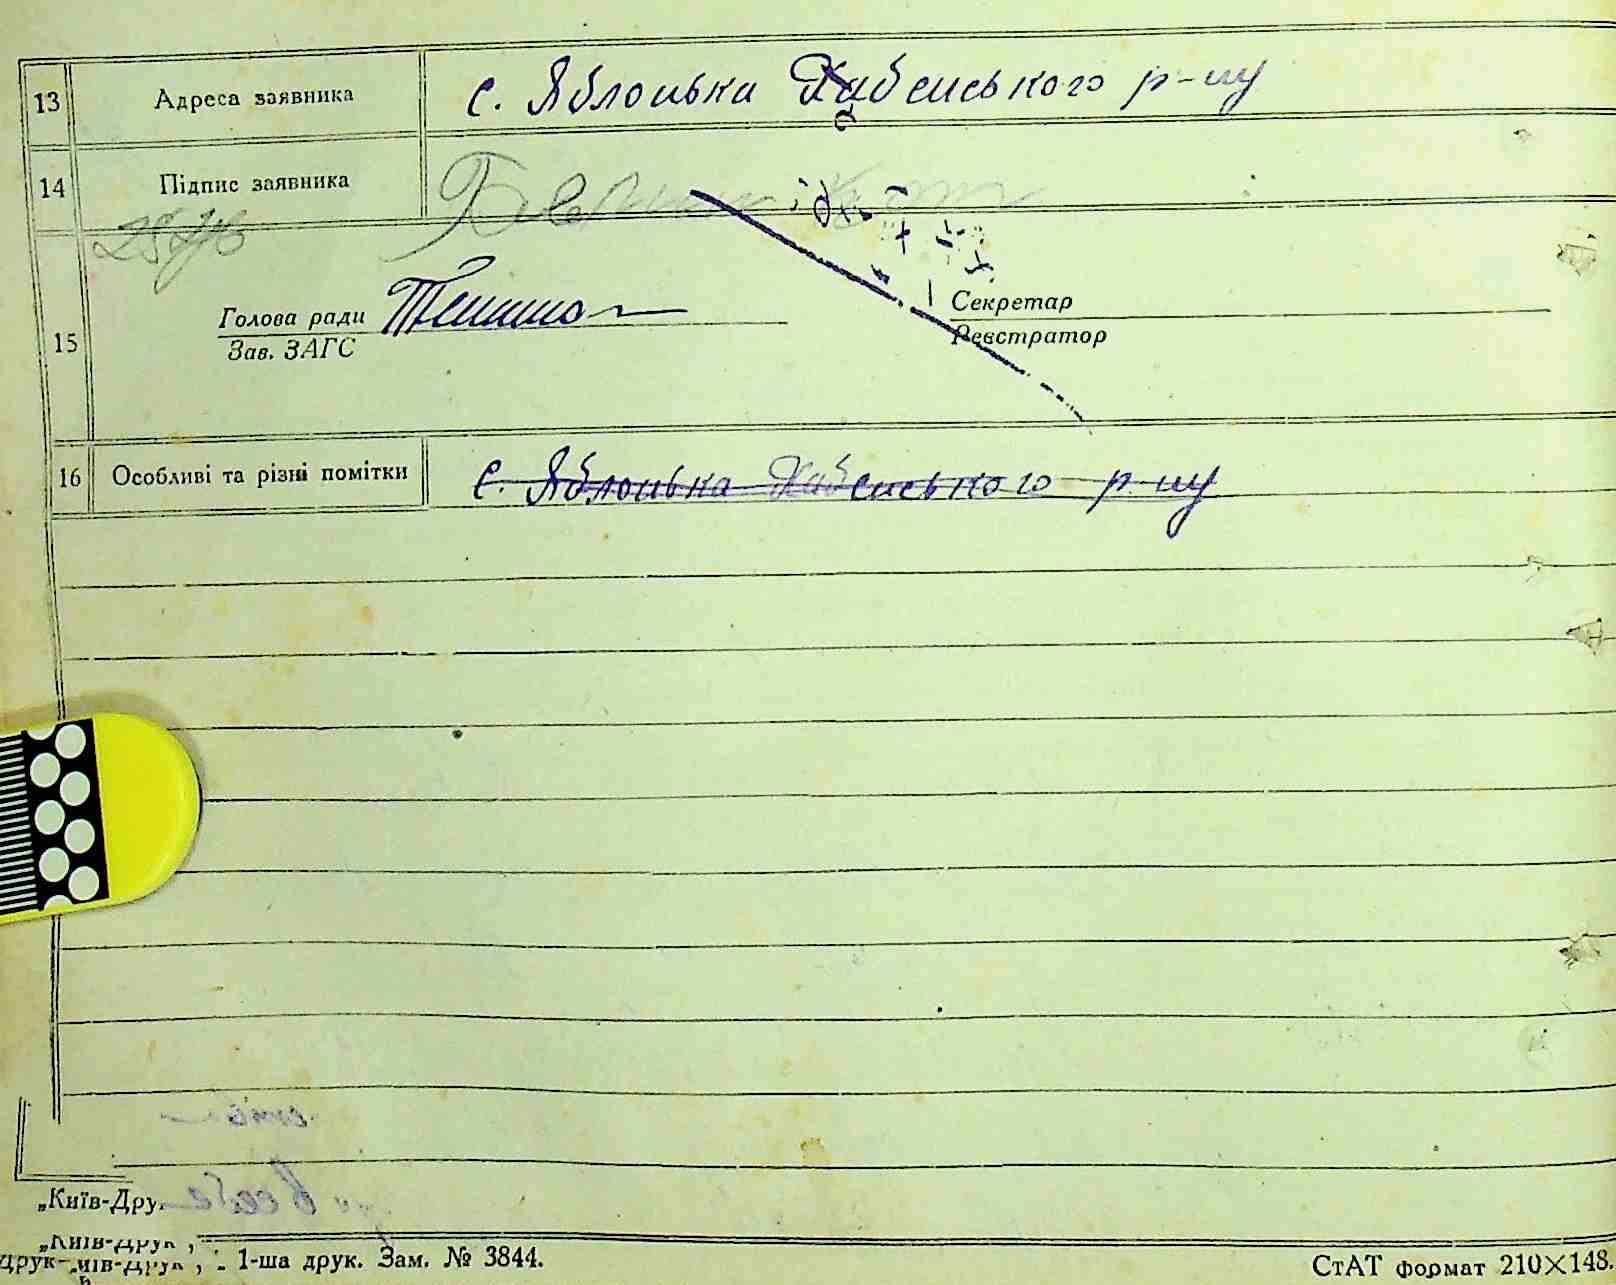 13 Адреса заявника с. Яблонька Хабенського р-ну
14 Підпис заявника
15 Голова ради
Зав. ЗАГС
Секретар
Реєстратор
16 Особливі та різні помітки с. Яблонька Хабенського р-ну
„Київ-Дру
„Київ-Друк",
1-ша друк. Зам. № 3844.
СтАТ формат 210×148.